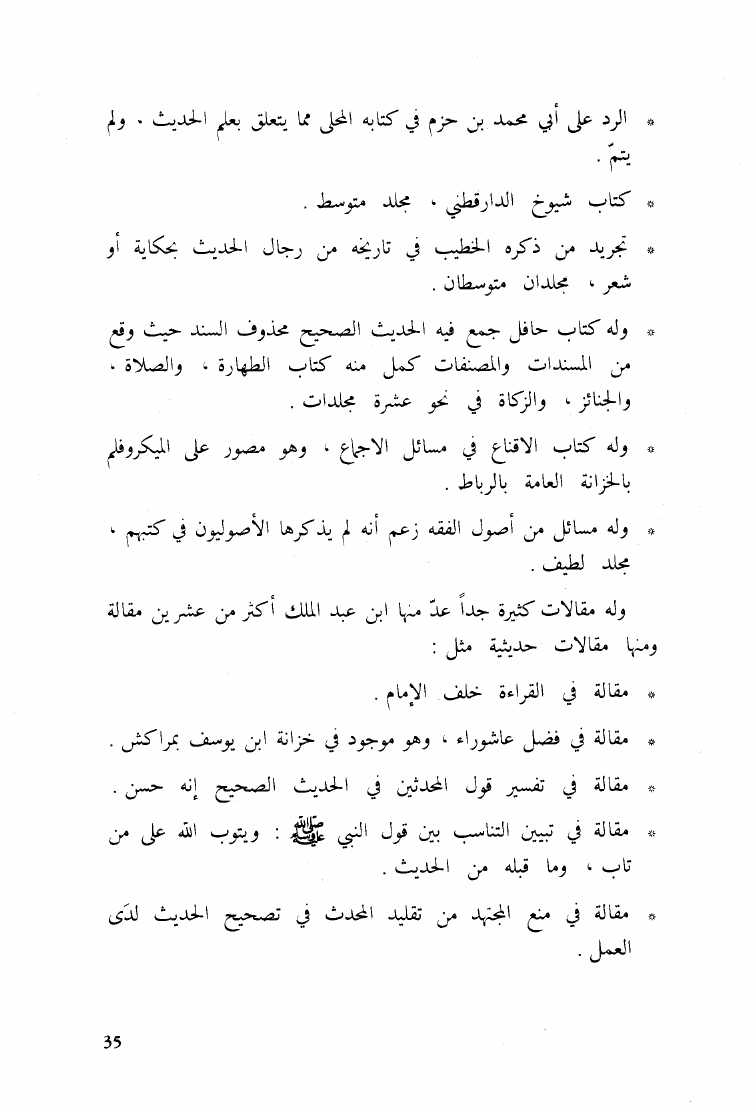 * الرد على أبي محمد بن حزم في كتابه المحلى مما يتعلق بعلم الحديث . ولم
يتمّ .
* كتاب شيوخ الدارقطني ، مجلد متوسط .
* تجريد من ذكره الخطيب في تاريخه من رجال الحديث بحكاية أو
شعر ، مجلدان متوسطان .
* وله كتاب حافل جمع فيه الحديث الصحيح محذوف السند حيث وقع
من المسندات والمصنفات كمل منه كتاب الطهارة ، والصلاة ،
والجنائز ، والزكاة في نحو عشرة مجلدات .
* وله كتاب الاقناع في مسائل الاجماع ، وهو مصور على الميكروفلم
بالخزانة العامة بالرباط .
* وله مسائل من أصول الفقه زعم أنه لم يذكرها الأصوليون في كتبهم ،
مجلد لطيف .
وله مقالات كثيرة جداً عدّ منها ابن عبد الملك أكثر من عشرين مقالة
ومنها مقالات حديثية مثل :
* مقالة في القراءة خلف الإمام .
* مقالة في فضل عاشوراء ، وهو موجود في خزانة ابن يوسف بمراكش .
* مقالة في تفسير قول المحدثين في الحديث الصحيح إنه حسن .
* مقالة في تبيين التناسب بين قول النبي ﷺ : ويتوب الله على من
تاب ، وما قبله من الحديث .
* مقالة في منع المجتهد من تقليد المحدث في تصحيح الحديث لدَى
العمل .
35